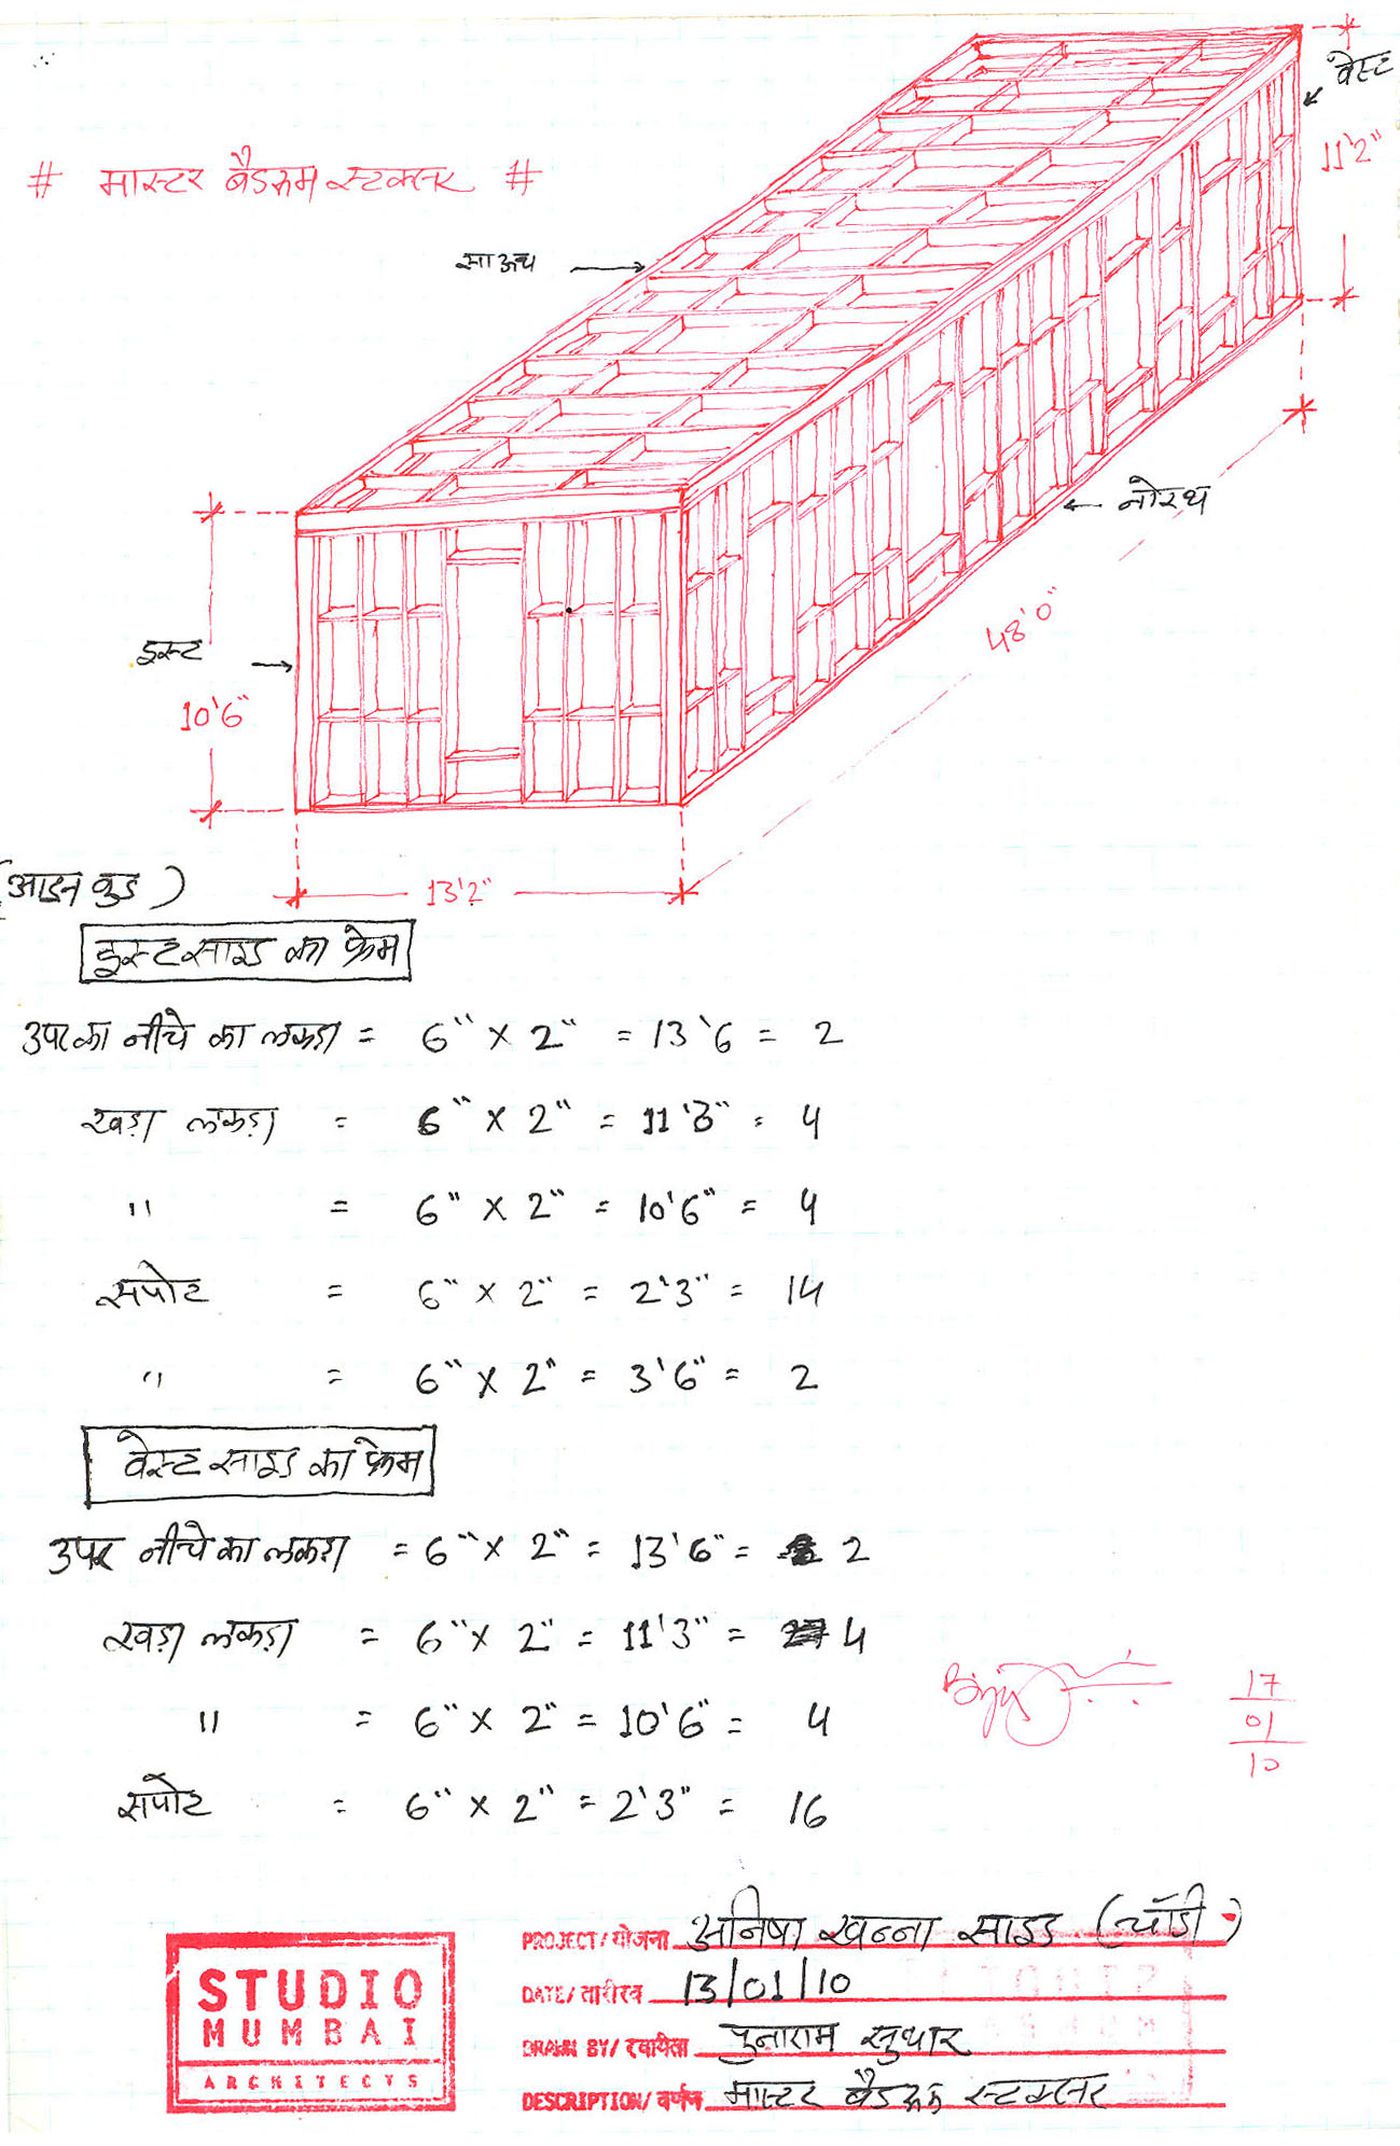 # मास्टर बैडरूम स्टक्चर #
वेस्ट
11'2"
साऊथ
नोरथ
48'0"
इस्ट
10'6"
13'2"
(आइन वुड)
इस्ट साइड का फ्रेम
उपर का नीचे का लकड़ा = 6" x 2" = 13'6 = 2
खड़ा लकड़ा = 6" x 2" = 11'3" = 4
" = 6" x 2" = 10'6" = 4
सपोट = 6" x 2" = 2'3" = 14
" = 6" x 2" = 3'6" = 2
वेस्ट साइड का फ्रेम
उपर नीचे का लकड़ा = 6" x 2" = 13'6" = 2
खड़ा लकड़ा = 6" x 2" = 11'3" = 4
" = 6" x 2" = 10'6" = 4
सर्पोट = 6" x 2" = 2'3" = 16
17
01
10
STUDIO
MUMBAI
ARCHITECTS
PROJECT/योजना अनिषा खन्ना साइड (चोंडी)
DATE/तारीख 13/01/10
DRAWN BY/रचयिता पुनाराम सुथार
DESCRIPTION/वर्णन मास्टर बैडरूम स्टक्चर